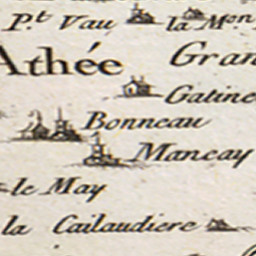 P.t Vau la M.on
Athée Gran
Gatine
Bonneau
Mancay
le May
la Cailaudiere